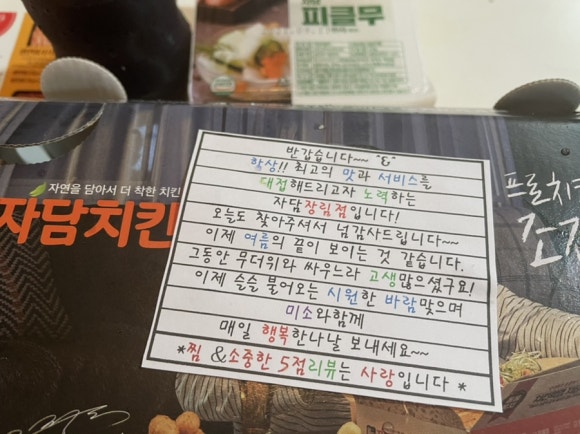 피클무
자연을 담아서 더 착한 치킨
자담치킨
반갑습니다~~ ^ε^
항상!! 최고의 맛과 서비스를
대접해드리고자 노력하는
자담장림점입니다!
오늘도 찾아주셔서 넘감사드립니다~~
이제 여름의 끝이 보이는 것 같습니다.
그동안 무더위와 싸우느라 고생많으셨구요!
이제 슬슬 불어오는 시원한 바람맞으며
미소와함께
매일 행복한나날 보내세요~~
*찜 &소중한 5점리뷰는 사랑입니다 *